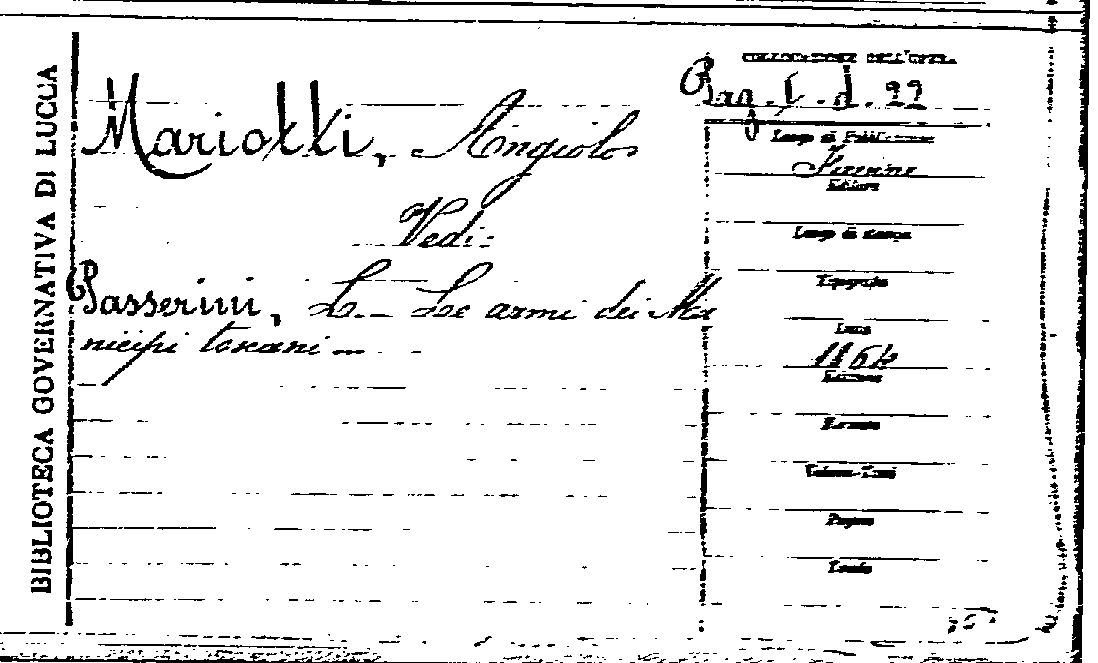 BIBLIOTECA GOVERNATIVA DI LUCCA
Mariotti, Angiolo
Vedi:
Passerini, L. - Le armi dei Mu
nicipi toscani -
COLLOCAZIONE DELL'OPERA
Bag. f. d. 22
Luogo di Pubblicazione
Firenze
Editore
Luogo di stampa
Tipografia
Data
1864
Edizione
Formato
Volumi-Tomi
Pagine